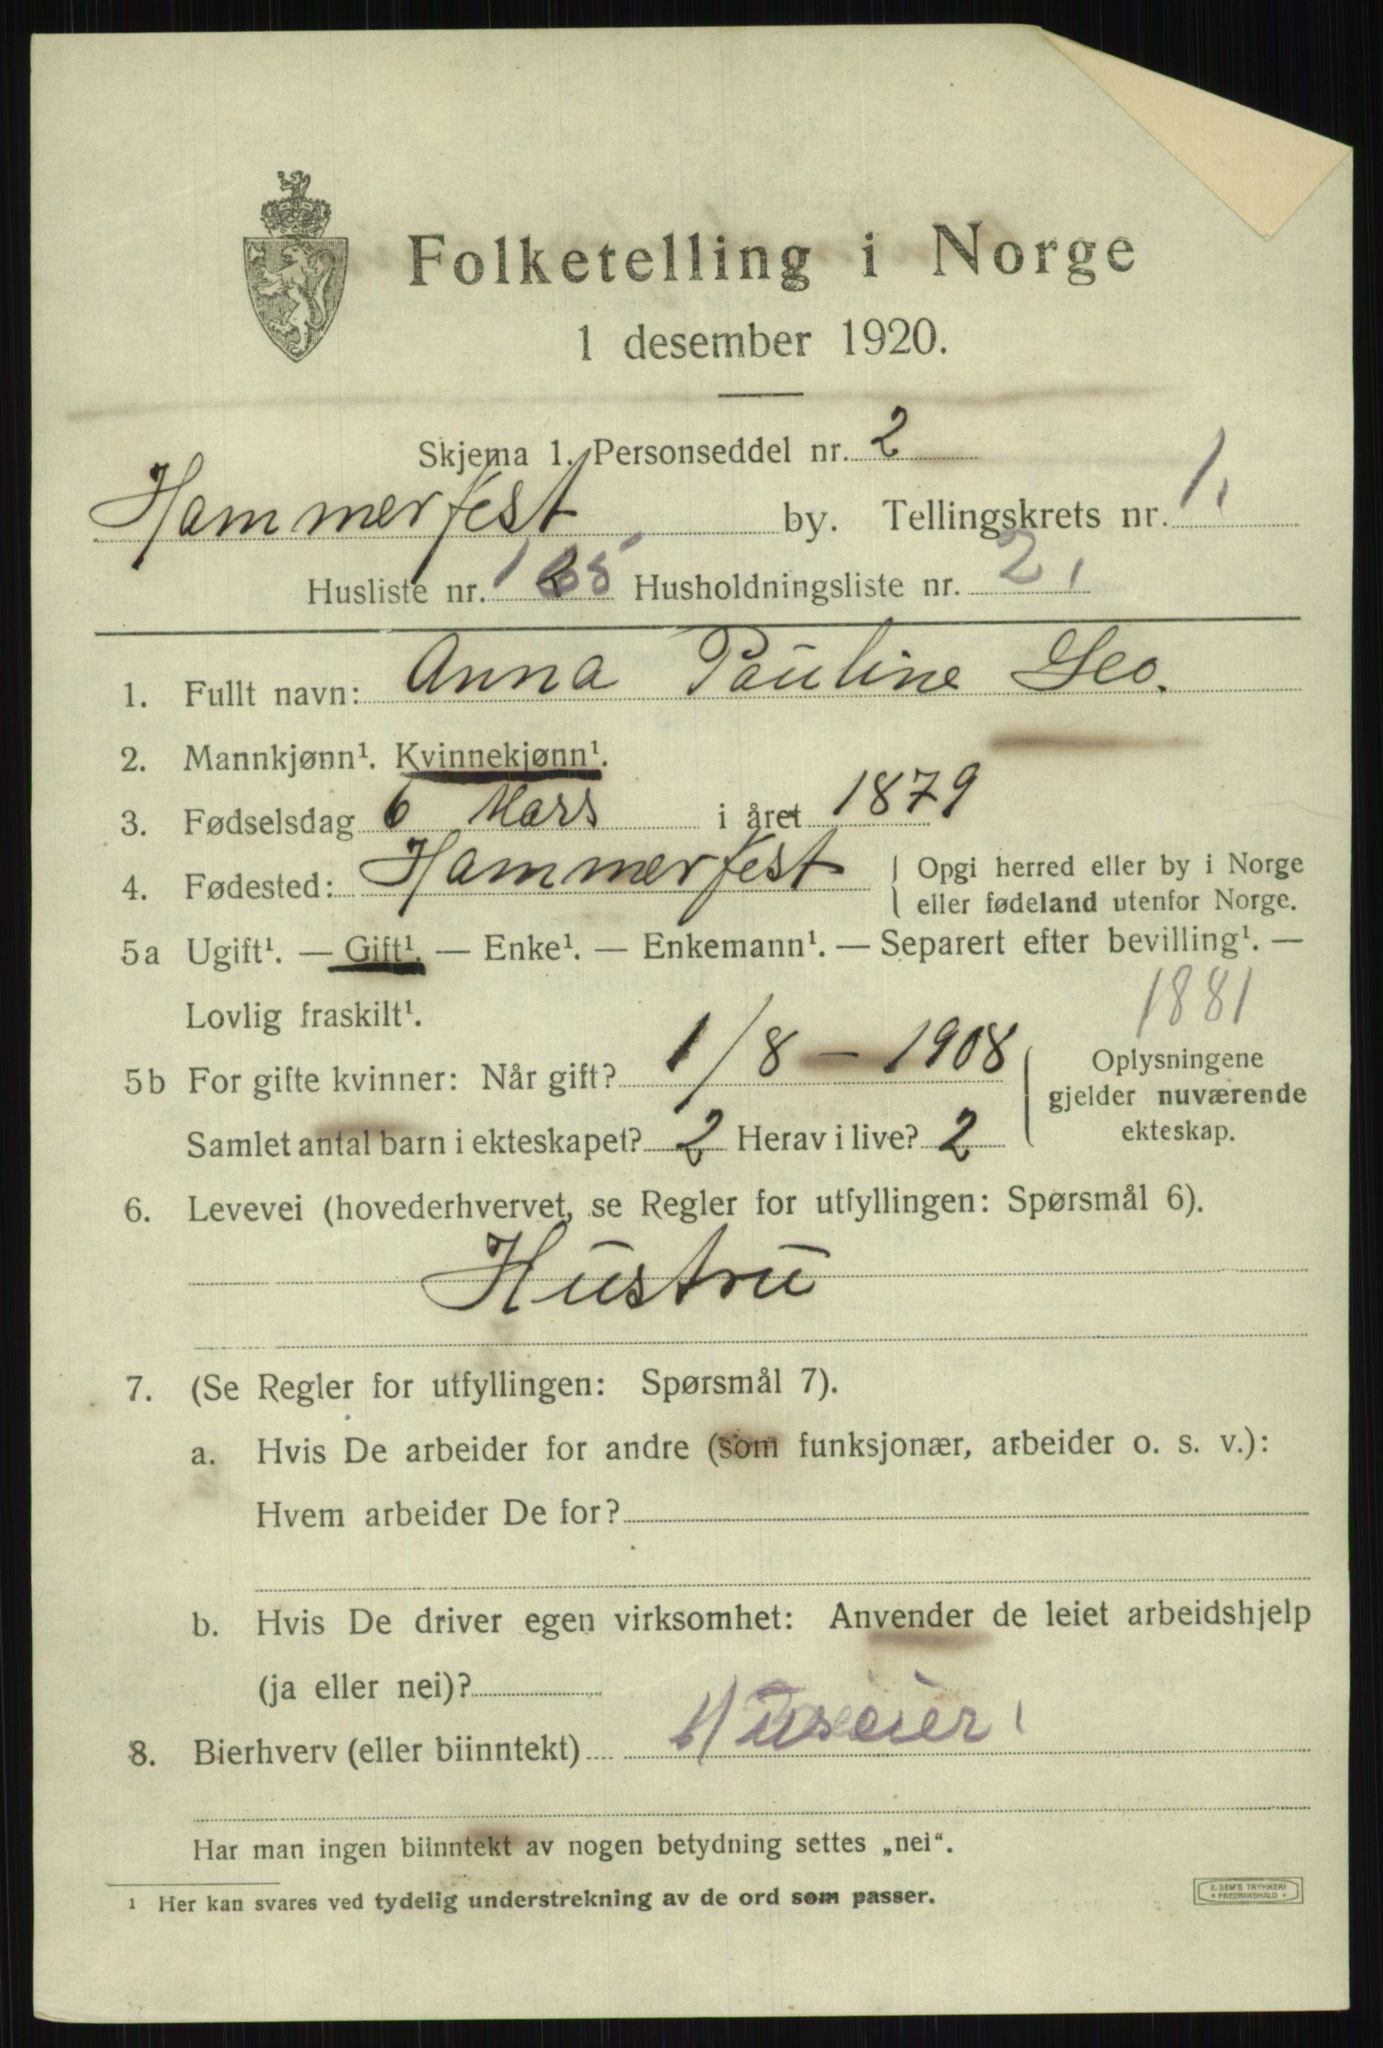 Folketelling i Norge
1 desember 1920.
Skjema 1. Personseddel nr. 2
Hammerfest by. Tellingskrets nr. 1.
Husliste nr. Husholdningsliste nr. 2.
1. Fullt navn: Anna Pauline Leo.
2. Mannkjønn¹. Kvinnekjønn¹.
3. Fødselsdag 6 Mars i året 1879
4. Fødested: Hammerfest Opgi herred eller by i Norge
eller fødeland utenfor Norge.
5a Ugift¹. — Gift¹. — Enke¹. — Enkemann¹. — Separert efter bevilling¹. —
Lovlig fraskilt¹.
1881
5b For gifte kvinner: Når gift? 1/8 – 1908
Samlet antal barn i ekteskapet? 2 Herav i live? 2
Oplysningene
gjelder nuværende
ekteskap.
6. Levevei (hovederhvervet, se Regler for utfyllingen: Spørsmål 6).
Hustru
7. (Se Regler for utfyllingen: Spørsmål 7).
a. Hvis De arbeider for andre (som funksjonær, arbeider o. s. v.):
Hvem arbeider De for?
b. Hvis De driver egen virksomhet: Anvender de leiet arbeidshjelp
(ja eller nei)?
8. Bierhverv (eller biinntekt) Huseier
Har man ingen biinntekt av nogen betydning settes „nei“.
1 Her kan svares ved tydelig understrekning av de ord som passer.
E. SEM'S TRYKKERI
FREDRIKSHALD